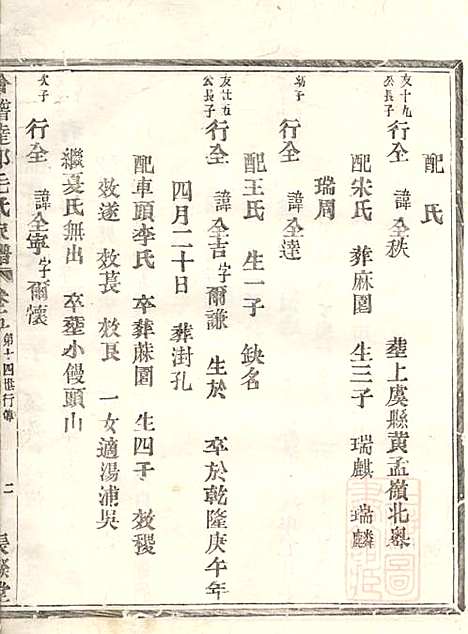 配 氏
友十九公長子 行全 諱全秩 塟上虞縣黄孟嶺北嶴
配宋氏 葬麻園 生三子 瑞麒 瑞麟
瑞周
幼子 行全 諱全達
配王氏 生一子 缺名
友廿五公長子 行全 諱全吉字爾謙 生於 卒於乾隆庚午年
四月二十日 葬封孔
配車頭李氏 卒葬蔴園 生四子 效稷
效遂 效萇 效良 一女適湯浦吳
繼夏氏無出 卒塟小饅頭山
次子 行全 諱全寧字爾懷
會稽達郭王氏家譜 第十四世行傳 二